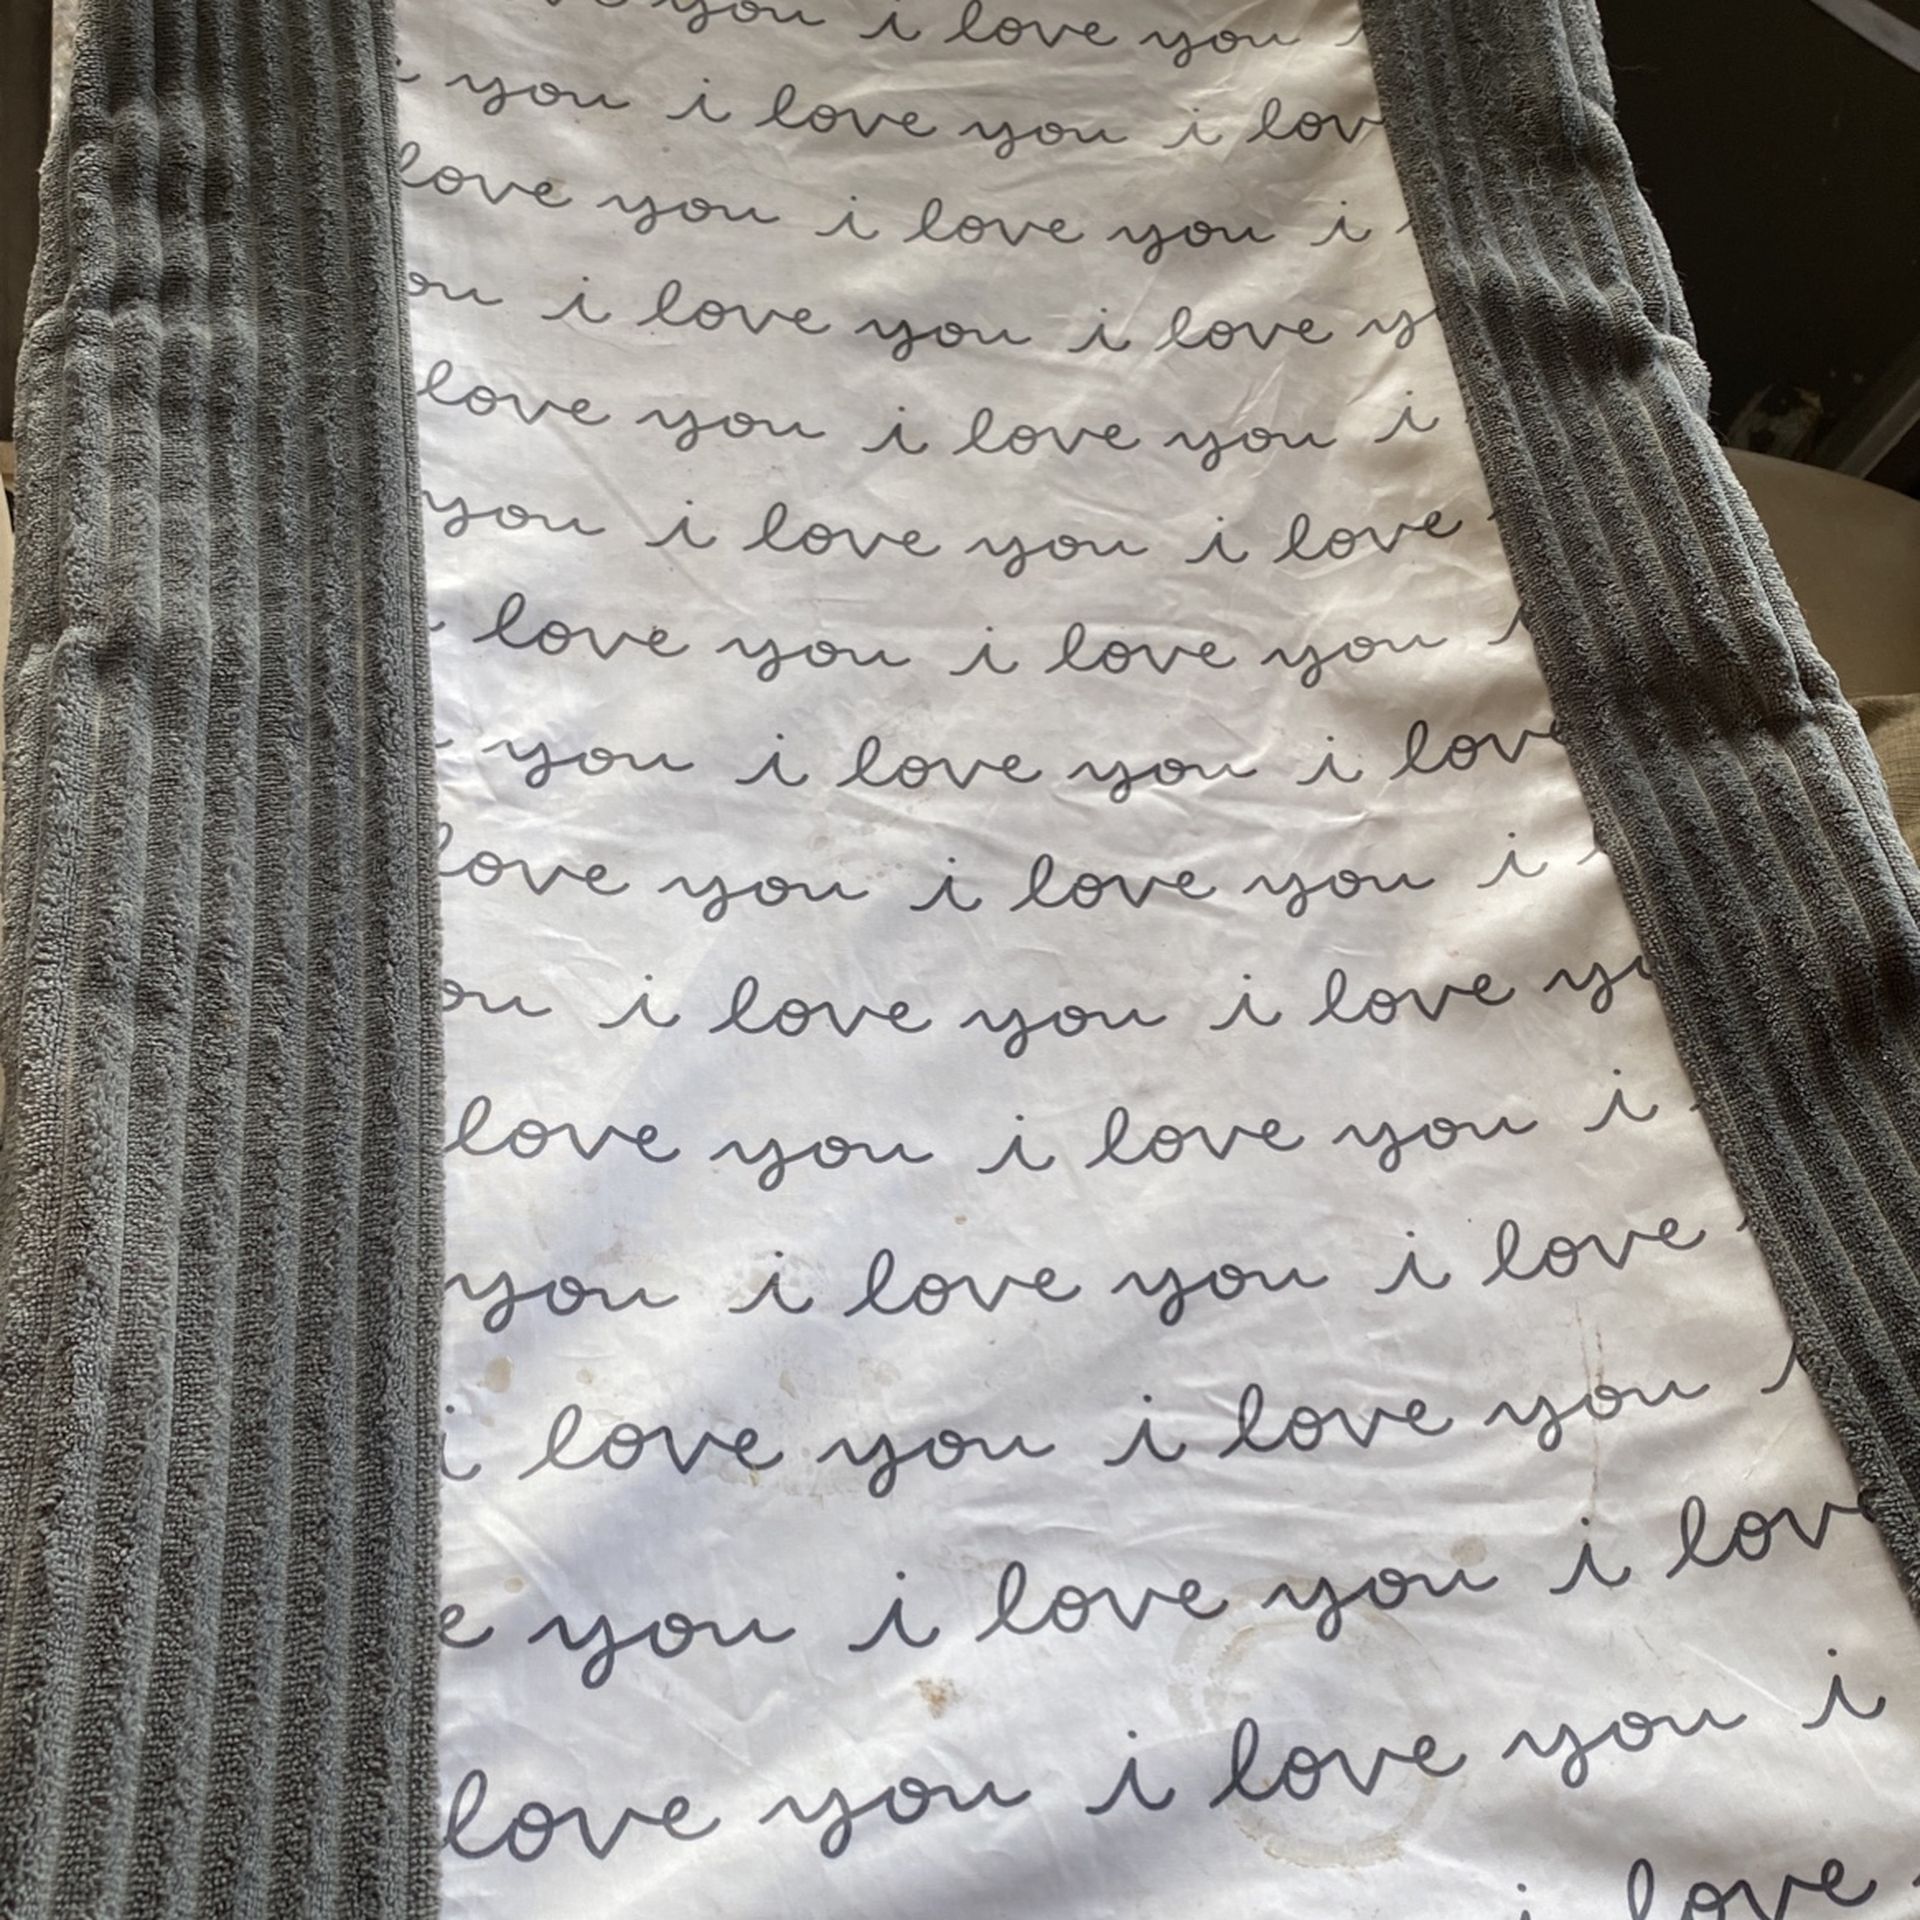 you i love you
you i love you i lov
love you i love you i
ou i love you i love y
love you i love you i
you i love you i love
love you i love you
you i love you i love
love you i love you i
ou i love you i love yo
love you i love you i
you i love you i love
i love you i love you
e you i love you i lov
love you i love you i
i love